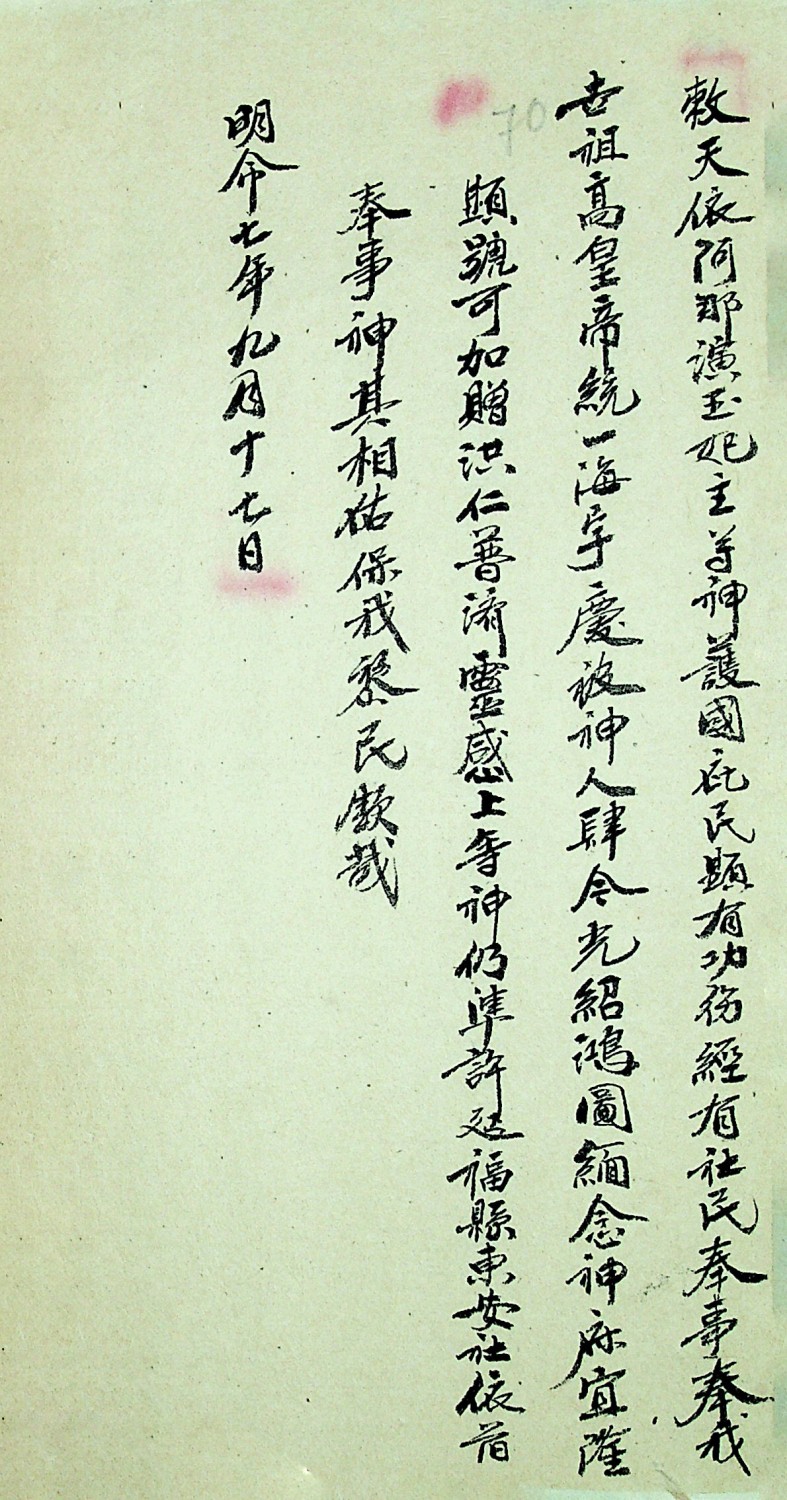 敕天依阿那演玉妃主等神護國庇民顯有功務經有社民奉事奉我
世祖高皇帝統一海宇慶被神人肆今光紹鴻圖緬念神庥宜隆
顯號可加贈洪仁普濟靈感上等神仍準許延福縣東安社依舊
奉事神其相佑保我黎民欽哉
明命七年九月十七日
70